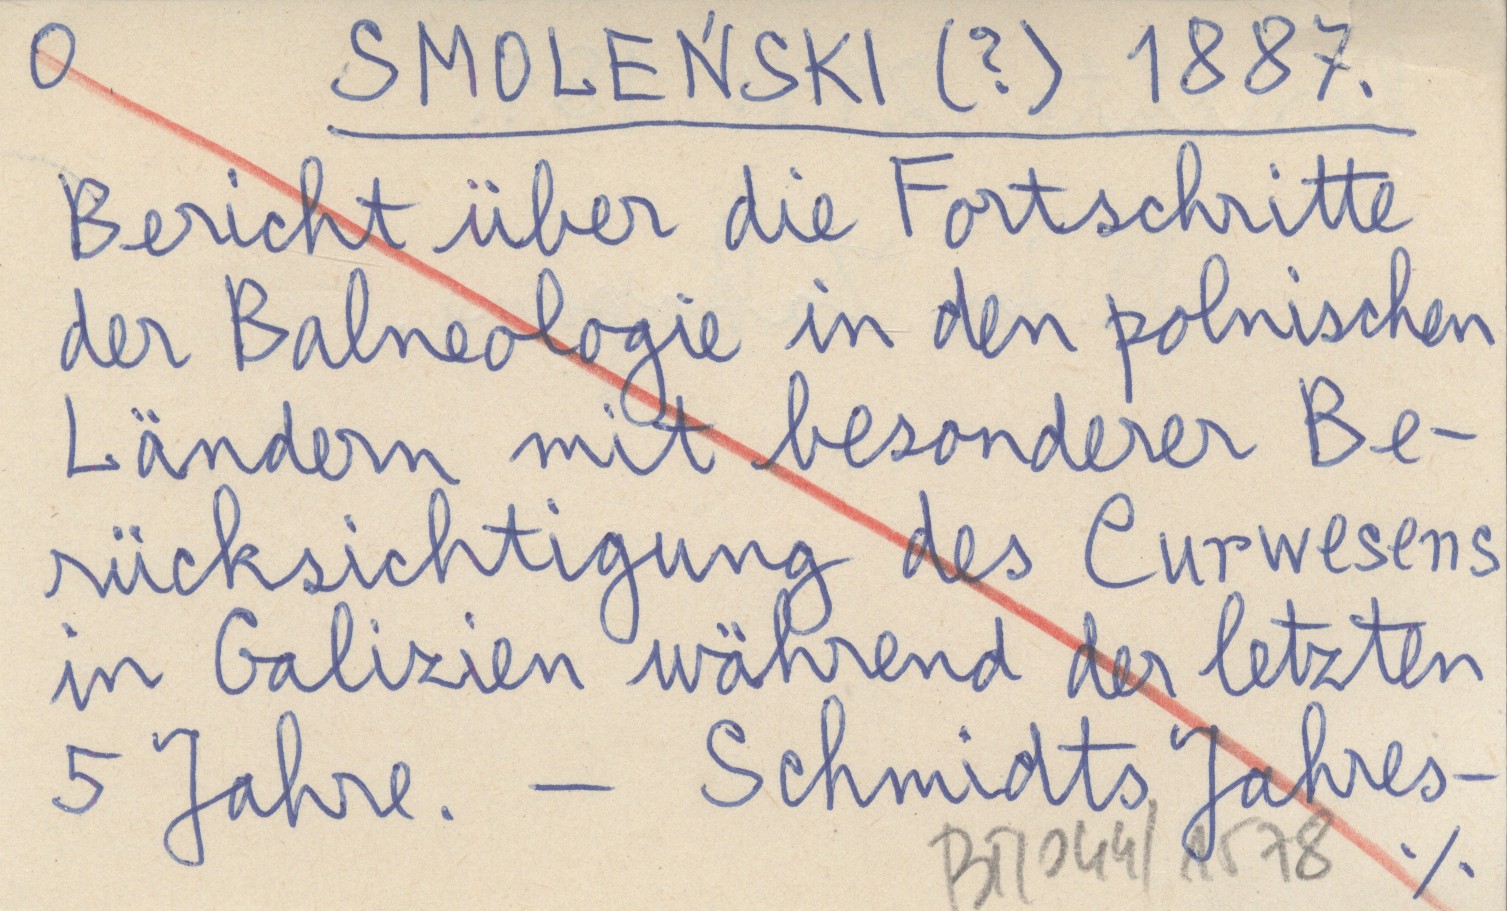 O SMOLEŃSKI (?) 1887.
Bericht über die Fortschritte
der Balneologie in den polnischen
Ländern mit besonderer Be-
rücksichtigung des Curwesens
in Galizien während der letzten
5 Jahre. — Schmidts Jahres-
./.